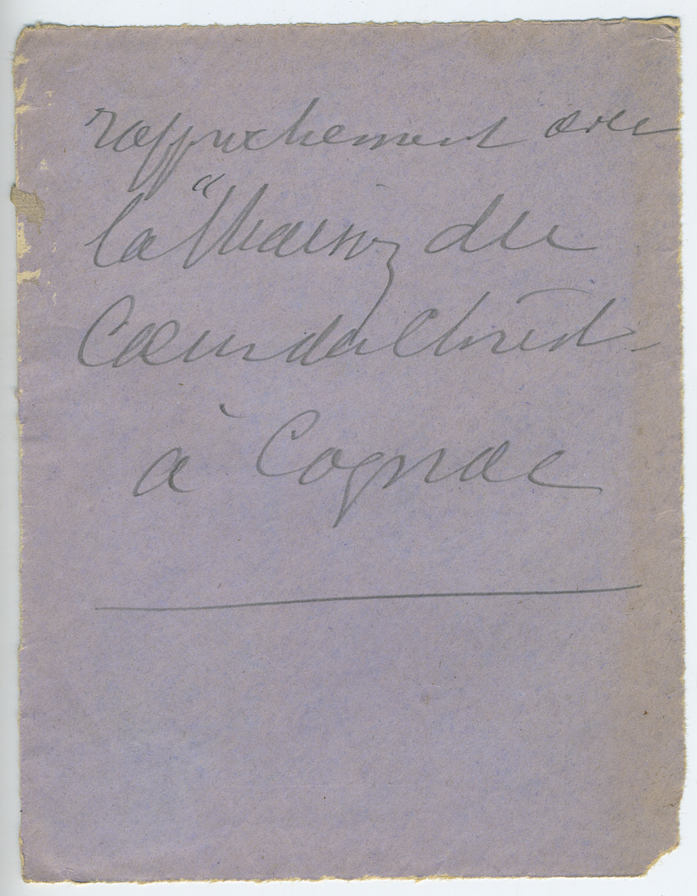 rapprochement avec
la "Maison du
Cœur du Christ
à Cognac